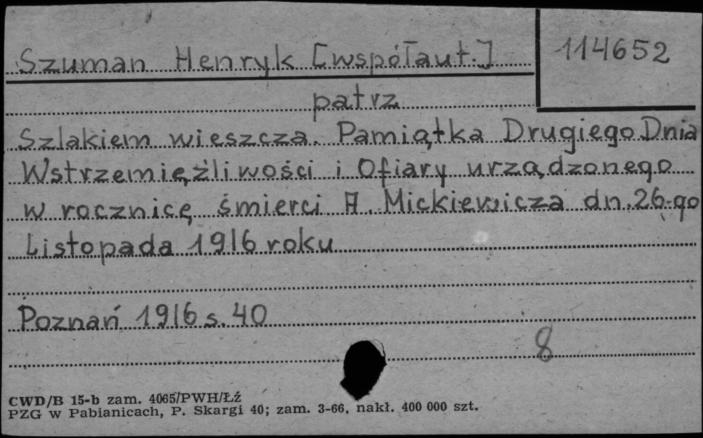 Szuman Henryk [współaut.]
114652
patrz
Szlakiem wieszcza. Pamiątka Drugiego Dnia
Wstrzemięźliwości i Ofiary urządzonego
w rocznicę śmierci A. Mickiewicza dn. 26-go
Listopada 1916 roku
Poznań 1916 s. 40
8
CWD/B 15-b zam. 4065/PWH/Łź
PZG w Pabianicach, P. Skargi 40; zam. 3-66, nakł. 400 000 szt.